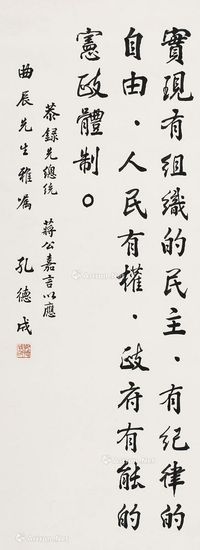 實現有組織的民主、有紀律的
自由、人民有權、政府有能的
憲政體制。
恭錄先總統 蔣公嘉言以應
曲辰先生雅屬
孔德成